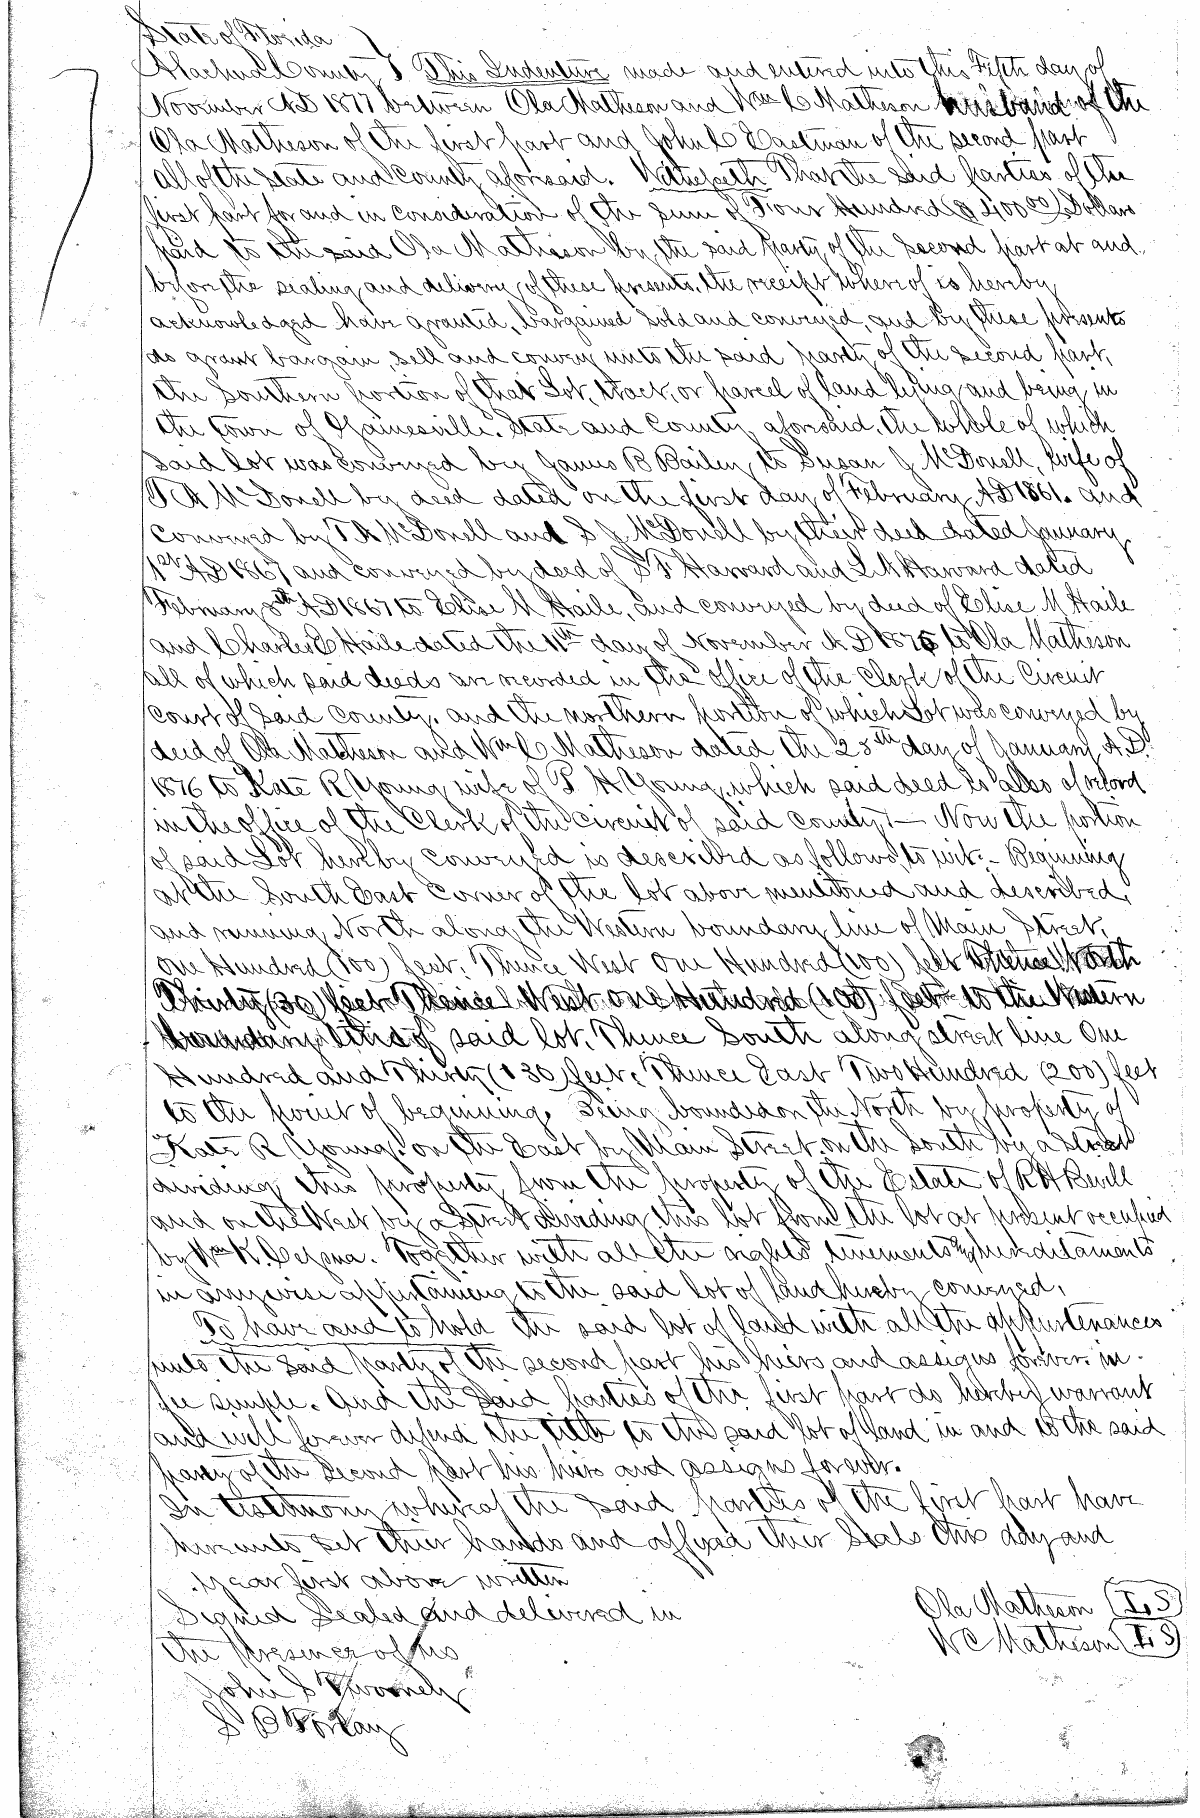 State of Florida
Alachua County } This Indenture made and entered into this Fifth day of
November A.D 1877 between Ola Matheson and Wm C Matheson husband of the
Ola Matheson of the first part and John C Eastman of the second part
all of the State and County aforesaid. Witnesseth That the said parties of the
first part for and in consideration of the sum of Four Hundred ($400.00) Dollars
paid to the said Ola Matheson by the said party of the second part at and
before the sealing and delivery of these presents, the receipt whereof is hereby
acknowledged have granted, bargained sold and conveyed, and by these presents
do grant bargain, sell and convey unto the said party of the second part,
the Southern portion of that Lot, tract, or parcel of land lying and being in
the town of Gainesville, State and County aforesaid, the whole of which
said lot was conveyed by James B Bailey to Susan J McDonell, wife of
T A McDonell by deed dated on the first day of February A.D 1861. and
conveyed by T A McDonell and S J McDonell by their deed dated January
1st A.D 1867 and conveyed by deed of S T Harvard and L A Harvard dated
February 8th A.D 1867 to Elise M Haile, and conveyed by deed of Elise M Haile
and Charles E Haile dated the 11th day of November A.D 1875 to Ola Matheson
all of which said deeds are recorded in the office of the Clerk of the Circuit
Court of said County. and the northern portion of which Lot was conveyed by
deed of Ola Matheson and Wm C Matheson dated the 28th day of January A.D.
1876 to Kate R Young wife of P. H Young, which said deed is also of record
in the office of the Clerk of the Circuit of said county. — Now the portion
of said Lot hereby conveyed is described as follows, to wit: - Beginning
at the South East Corner of the lot above mentioned and described,
and running North along the Western boundary line of Main Street,
One Hundred (100) feet, Thence West One Hundred (100) feet Thence North
Thirty (30) feet Thence West one Hundred (100) feet to the Western
boundary line of said lot, Thence South along street line One
Hundred and Thirty (130) feet, Thence East Two Hundred (200) feet
to the point of beginning, Being bounded on the North by property of
Kate R Young. on the East by Main Street. on the South by a Street
dividing this property from the property of the Estate of R H Revill
and on the West by a Street dividing this lot from the lot at present occupied
by Wm K. Cessna. Together with all the rights tenements & hereditaments
in anywise appertaining to the said lot of land hereby conveyed,
To have and to hold the said lot of land with all the appurtenances
unto the said party of the second part his heirs and assigns forever in
fee simple. And the said parties of the first part do hereby warrant
and will forever defend the title to the said lot of land in and to the said
party of the second part his heirs and assigns forever.
In testimony whereof the said parties of the first part have
hereunto set their hands and affixed their seals this day and
year first above written
Signed Sealed and delivered in
Ola Matheson (L.S)
the presence of us
W C Matheson (L.S)
John S
S B